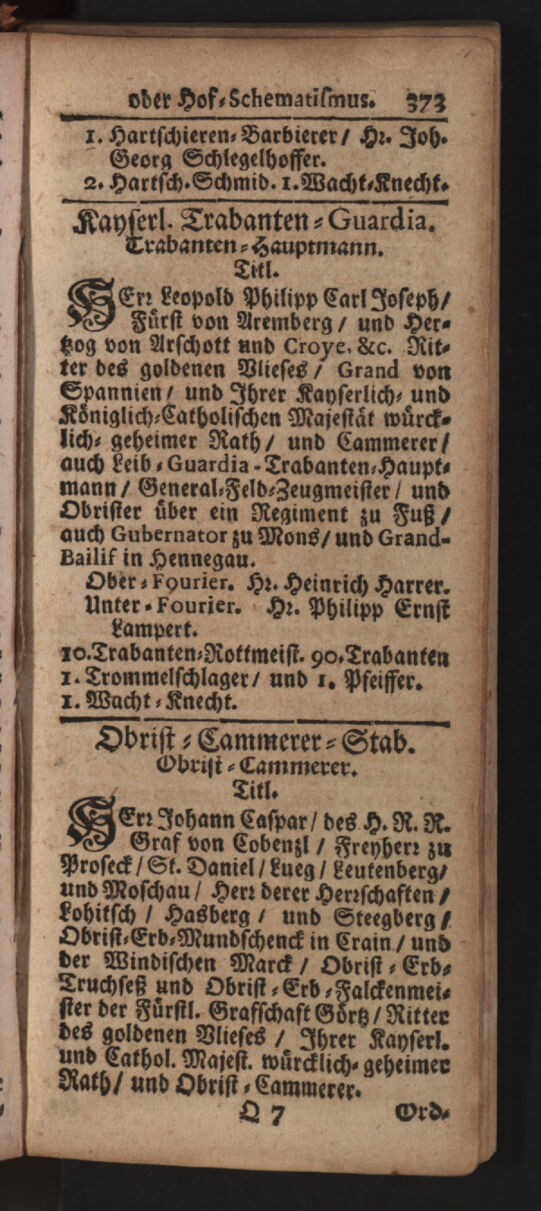 oder Hof-Schematismus. 373
1. Hartschieren-Barbierer/ Hr. Joh.
Georg Schlegelhoffer.
2. Hartsch. Schmid. 1. Wacht-Knecht.
Kayserl. Trabanten-Guardia.
Trabanten-Hauptmann.
Titl.
HErr Leopold Philipp Carl Joseph/
Fürst von Aremberg / und Her-
tzog von Arschott und Croye, &c. Rit-
ter des goldenen Vlieses / Grand von
Spannien / und Ihrer Kayserlich- und
Königlich-Catholischen Majestät würck-
lich- geheimer Rath / und Cammerer /
auch Leib-Guardia-Trabanten-Haupt-
mann / General-Feld-Zeugmeister / und
Obrister über ein Regiment zu Fuß /
auch Gubernator zu Mons / und Grand-
Bailif in Hennegau.
Ober-Fourier. Hr. Heinrich Harrer.
Unter-Fourier. Hr. Philipp Ernst
Lampert.
10. Trabanten-Rottmeist. 90. Trabanten
1. Trommelschlager / und 1. Pfeiffer.
1. Wacht-Knecht.
Obrist-Cammerer-Stab.
Obrist-Cammerer.
Titl.
HErr Johann Caspar / des H. R. R.
Graf von Cobenzl / Freyherr zu
Proseck / St. Daniel / Lueg / Leutenberg/
und Moschau / Herr derer Herrschaften /
Lohitsch / Hasberg / und Steegberg /
Obrist-Erb-Mundschenck in Crain / und
der Windischen Marck / Obrist-Erb-
Truchseß und Obrist-Erb-Falckenmei-
ster der Fürstl. Grafschaft Görtz / Ritter
des goldenen Vlieses / Ihrer Kayserl.
und Cathol. Majest. würcklich-geheimer
Rath / und Obrist-Cammerer.
Q 7 Ord-